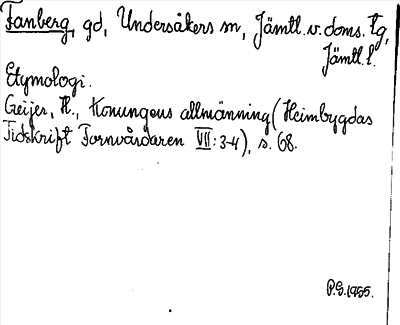 Fanberg, gd, Undersåkers sn, Jämtl. v. doms. tg,
Jämtl. l.
Etymologi.
Geijer, H., Konungens allmänning (Heimbygdas
Tidskrift Fornvårdaren VII: 3-4), s. 68.
P.S. 1955.